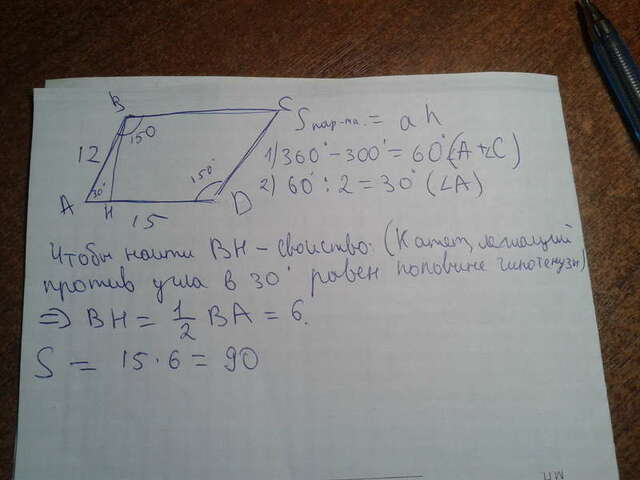 B C
150
12
150°
30°
A H D
15
S пар-ма. = a h
1) 360° - 300° = 60° (A + ∠C)
2) 60° : 2 = 30° (∠A)
Чтобы найти BH - свойство: (Катет, лежащий
против угла в 30° равен половине гипотенузы)
⇒ BH = 1/2 BA = 6.
S = 15 · 6 = 90